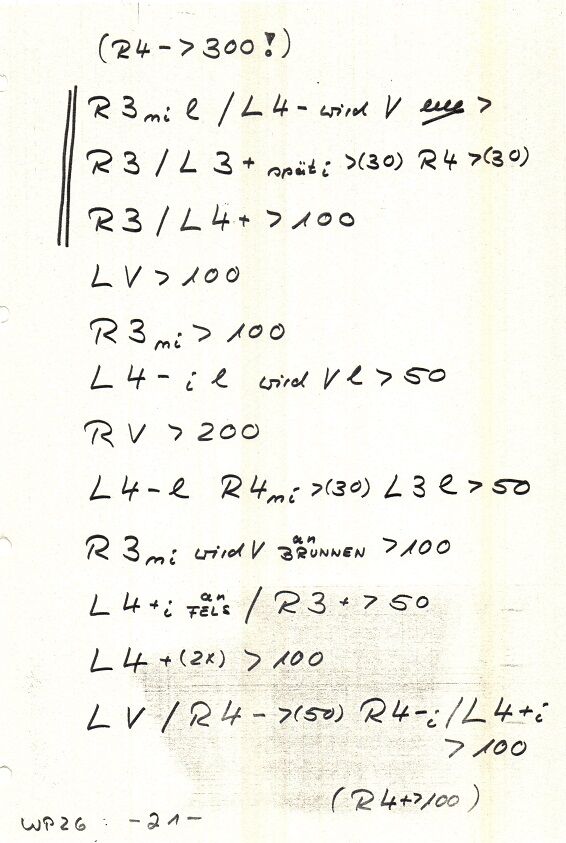 (R4->300!)
R3 mi l / L4- wird V >
R3 / L3+ spät i >(30) R4 >(30)
R3 / L4+ > 100
LV > 100
R3 mi > 100
L4- i l wird V l > 50
RV > 200
L4-l R4 mi >(30) L3 l > 50
R3 mi wird V an BRUNNEN > 100
L4+i an FELS / R3+ > 50
L4+(2x) > 100
LV / R4->(50) R4-i / L4+i
> 100
(R4+>100)
WP26: -21-